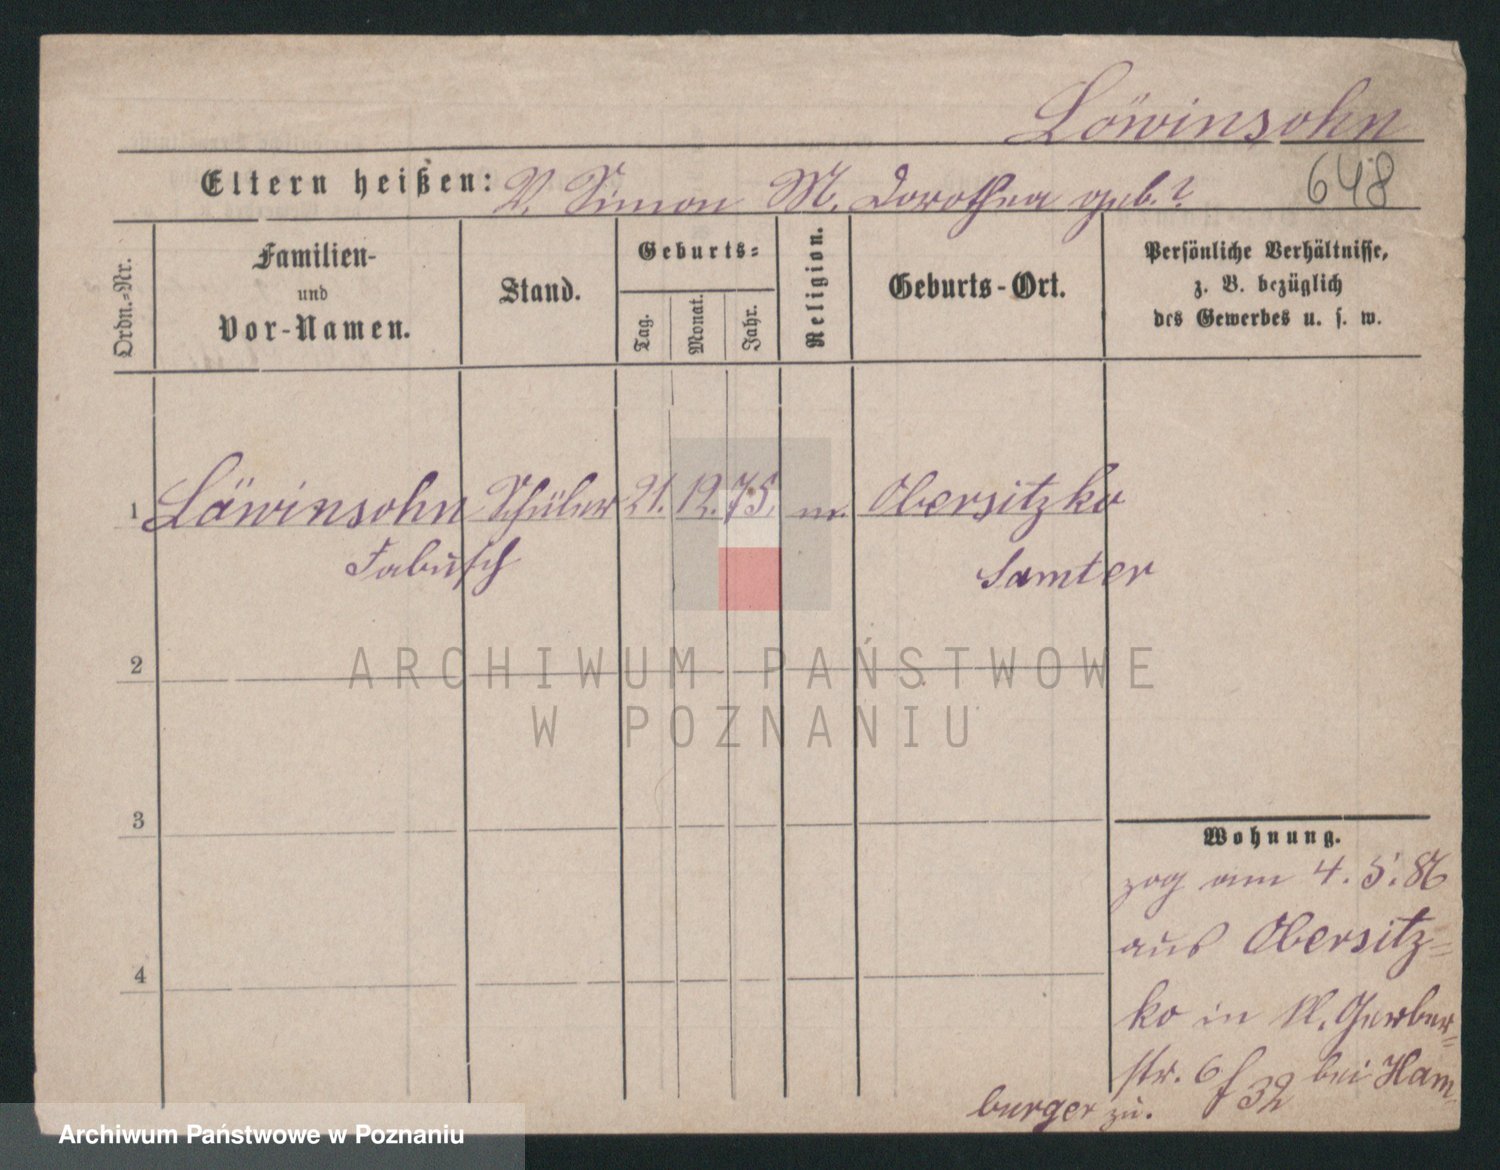 Löwinsohn
Eltern heißen: V. Simon M. Dorothea geb. ?
648
Ordn.-Nr.
Familien-
und
Vor-Namen.
Stand.
Geburts-
Tag.
Monat.
Jahr.
Religion.
Geburts-Ort.
Persönliche Verhältnisse,
z. B. bezüglich
des Gewerbes u. s. w.
1 Läwinsohn Schüler 21. 12. 75. m. Obersitzko
Samter
2
ARCHIWUM PAŃSTWOWE
W POZNANIU
3
4
Wohnung.
zog am 4. 5. 86
aus Obersitz-
ko in Kl. Gerber-
str. 6 f 32 bei Ham-
burger zu.
Archiwum Państwowe w Poznaniu